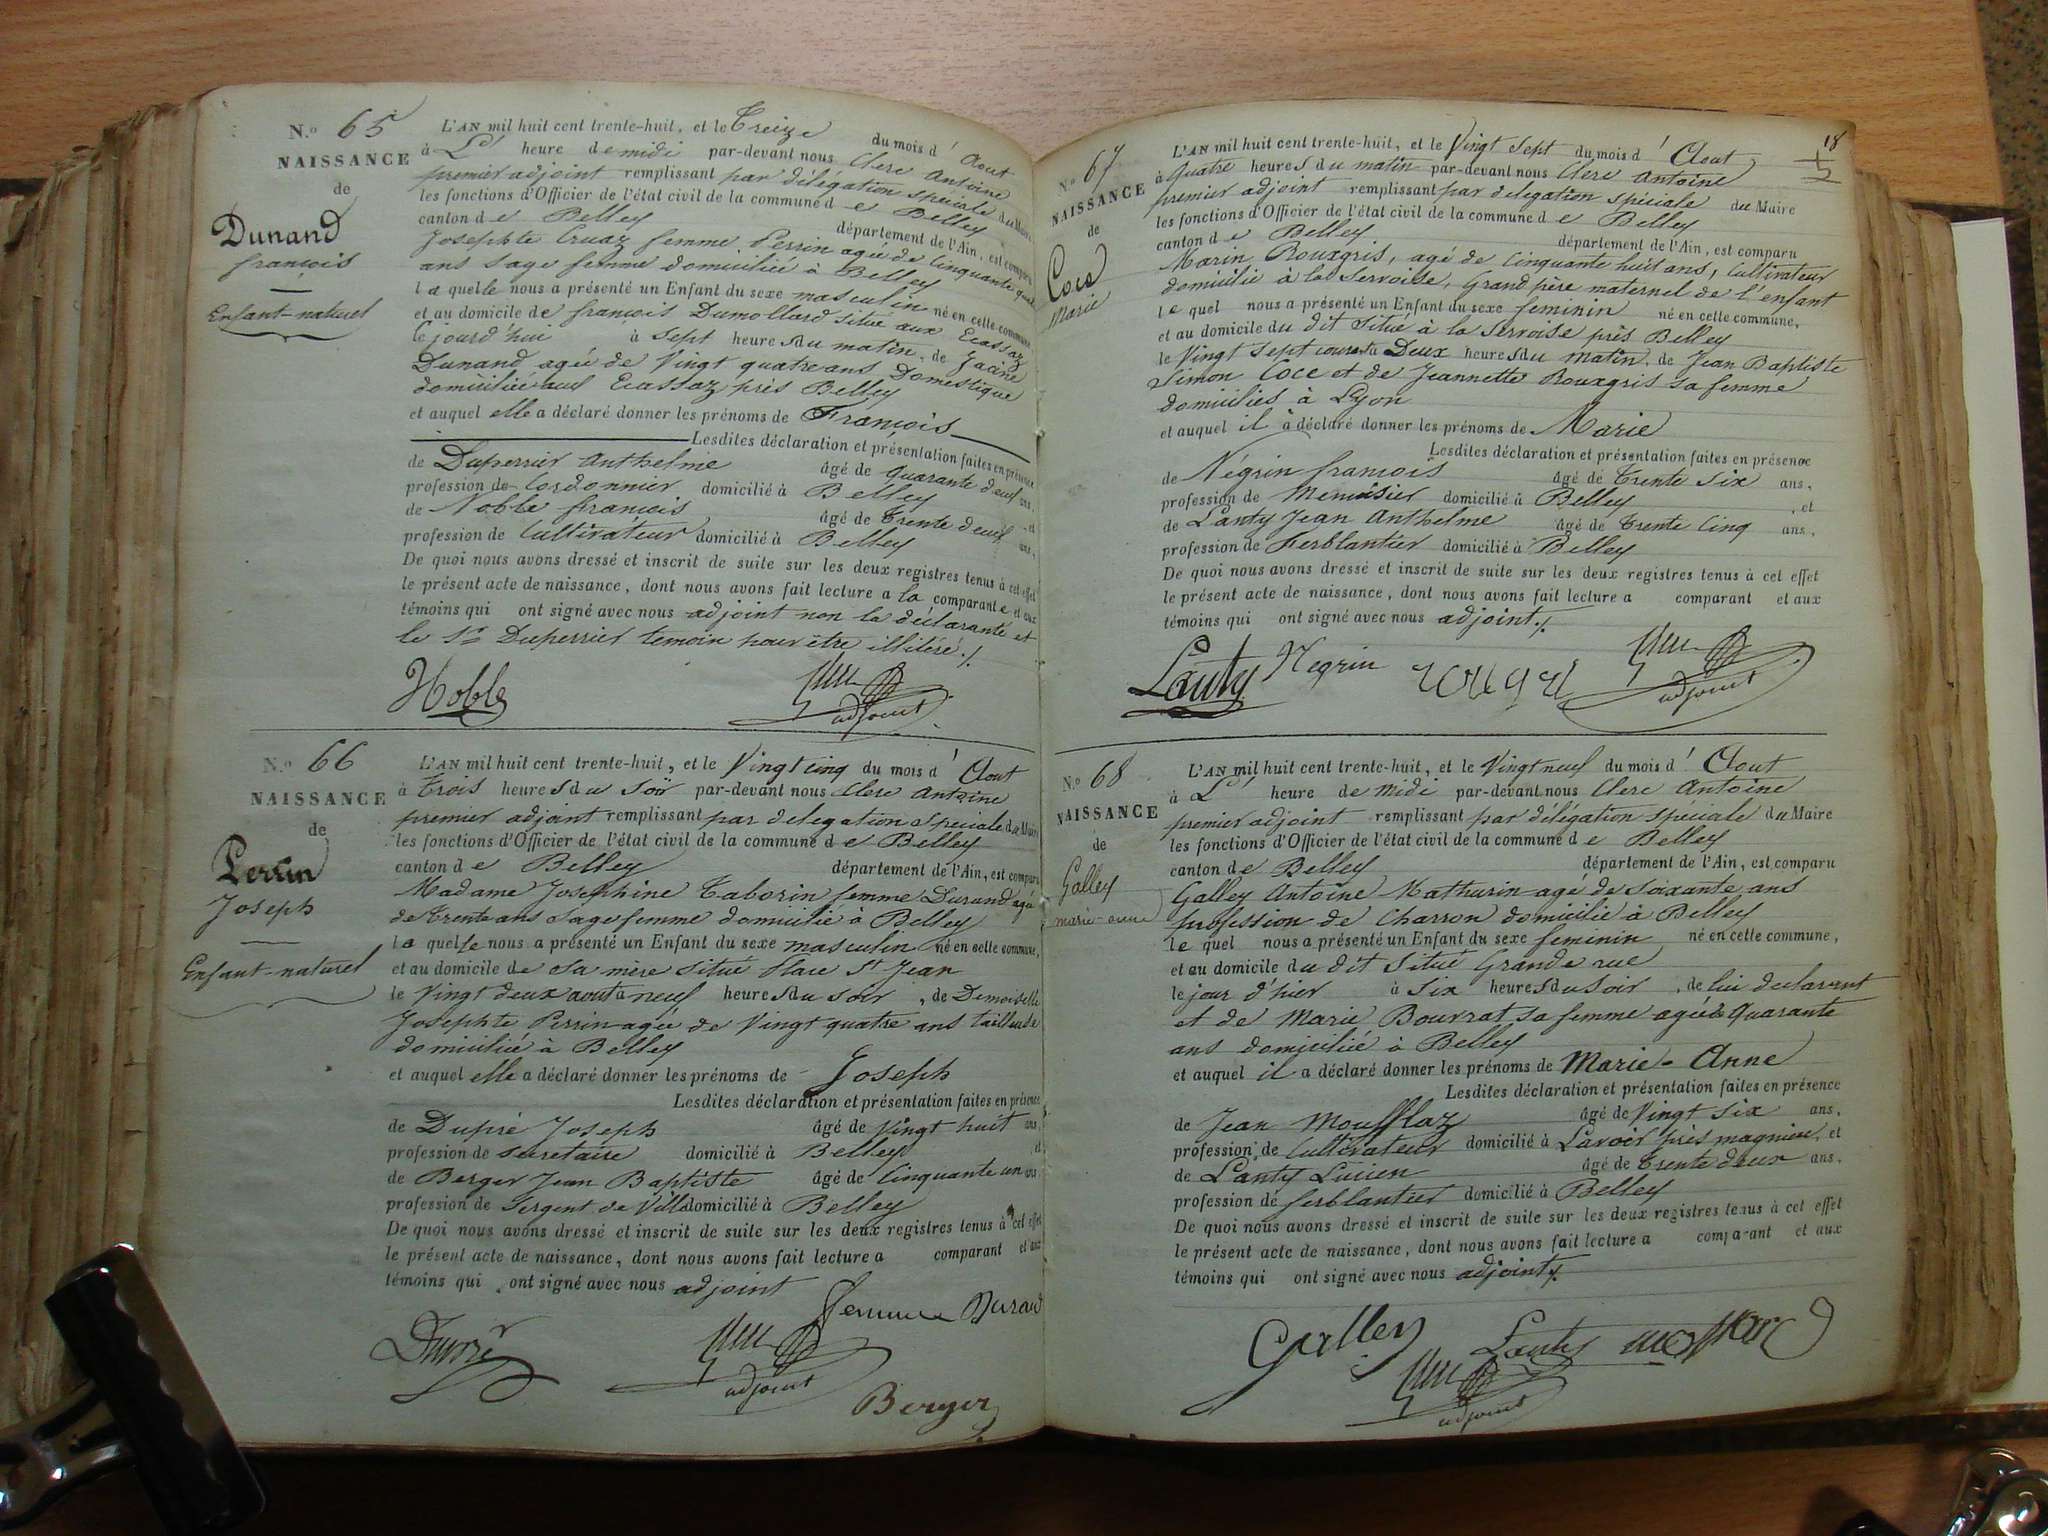 N.o 65
NAISSANCE
de
Dunand
françois
Enfant-naturel
L'AN mil huit cent trente-huit, et le Treize du mois d' Aout
à L' heure de midi par-devant nous Clerc Antoine
premier adjoint remplissant par délégation spéciale du Maire
les fonctions d'Officier de l'état civil de la commune de Belley
canton de Belley département de l'Ain, est comparu
Josephte Cruaz femme Perrin agée de Cinquante quatre
ans Sage femme domiciliée à Belley
laquelle nous a présenté un Enfant du sexe masculin né en cette commune
et au domicile de françois Dumollard situé aux Ecassaz
le jourd'hui à sept heures du matin, de Jacine
Dunand agée de Vingt quatre ans Domestique
domiciliée aux Ecassaz près Belley
et auquel elle a déclaré donner les prénoms de François
Lesdites déclaration et présentation faites en présence
de Duperrier Anthelme âgé de quarante deux ans,
profession de Cordonnier domicilié à Belley , et
de Noble françois âgé de Trente deux ans,
profession de Cultivateur domicilié à Belley
De quoi nous avons dressé et inscrit de suite sur les deux registres tenus à cet effet
le présent acte de naissance, dont nous avons fait lecture a la comparante et aux
témoins qui ont signé avec nous adjoint non la déclarante et
le Sr Duperrier temoin pour être illitéré ./.
Noble adjoint
N.o 66
NAISSANCE
de
Perrin
Joseph
Enfant-naturel
L'AN mil huit cent trente-huit, et le Vingt cinq du mois d' Aout
à Trois heures du soir par-devant nous Clerc Antoine
premier adjoint remplissant par délégation speciale du Maire
les fonctions d'Officier de l'état civil de la commune de Belley
canton de Belley département de l'Ain, est comparu
Madame Josephine Taborin femme Durand agée
de Trente ans Sage femme domiciliée à Belley
laquelle nous a présenté un Enfant du sexe masculin né en cette commune,
et au domicile de sa mère situé Place St Jean
le Vingt deux aout à neuf heures du soir , de Demoiselle
Josephte Perrin agée de Vingt quatre ans tailleuse
domiciliée à Belley
et auquel elle a déclaré donner les prénoms de Joseph
Lesdites déclaration et présentation faites en présence
de Dupré Joseph âgé de Vingt huit ans,
profession de secretaire domicilié à Belley et
de Berger Jean Baptiste âgé de Cinquante un ans,
profession de Sergent de Ville domicilié à Belley
De quoi nous avons dressé et inscrit de suite sur les deux registres tenus à cet effet
le présent acte de naissance, dont nous avons fait lecture a comparant et aux
témoins qui ont signé avec nous adjoint
femme Durand
Dupré adjoint
Berger
18
N.o 67
NAISSANCE
de
Coce
Marie
L'AN mil huit cent trente-huit, et le Vingt sept du mois d' Aout
à Quatre heures du matin par-devant nous Clerc Antoine
premier adjoint remplissant par délégation spéciale du Maire
les fonctions d'Officier de l'état civil de la commune de Belley
canton de Belley département de l'Ain, est comparu
Marin Rouxgris, agé de Cinquante huit ans, Cultivateur
domicilié à la Servoise, Grand père maternel de l'enfant
lequel nous a présenté un Enfant du sexe feminin né en cette commune,
et au domicile du dit situé à la Servoise près Belley
le Vingt sept courant à Deux heures du matin, de Jean Baptiste
Simon Coce et de Jeannette Rouxgris sa femme
domiciliés à Lyon
et auquel il a déclaré donner les prénoms de Marie
Lesdites déclaration et présentation faites en présence
de Négrin françois âgé de Trente Six ans,
profession de Menuisier domicilié à Belley , et
de Lanty Jean Anthelme âgé de Trente Cinq ans,
profession de Ferblantier domicilié à Belley
De quoi nous avons dressé et inscrit de suite sur les deux registres tenus à cet effet
le présent acte de naissance, dont nous avons fait lecture a comparant et aux
témoins qui ont signé avec nous adjoint ./.
Lanty Negrin adjoint
N.o 68
NAISSANCE
de
Galley
marie-anne
L'AN mil huit cent trente-huit, et le Vingt neuf du mois d' Aout
à L' heure de Midi par-devant nous Clerc Antoine
premier adjoint remplissant par délégation spéciale du Maire
les fonctions d'Officier de l'état civil de la commune de Belley
canton de Belley département de l'Ain, est comparu
Galley Antoine Mathurin agé de Soixante ans
profession de Charron domicilié à Belley
lequel nous a présenté un Enfant du sexe feminin né en cette commune,
et au domicile du dit Situé Grande rue
le jour d'hier à Six heures du soir , de lui declarant
et de Marie Bouvrat sa femme agée de Quarante
ans domiciliée à Belley
et auquel il a déclaré donner les prénoms de Marie-Anne
Lesdites déclaration et présentation faites en présence
de Jean Moufflaz âgé de Vingt Six ans,
profession de Cultivateur domicilié à Lavoir près magnieu, et
de Lanty Lucien âgé de Trente deux ans,
profession de ferblantier domicilié à Belley
De quoi nous avons dressé et inscrit de suite sur les deux registres tenus à cet effet
le présent acte de naissance, dont nous avons fait lecture a comparant et aux
témoins qui ont signé avec nous adjoint ./.
Galley Lanty
adjoint